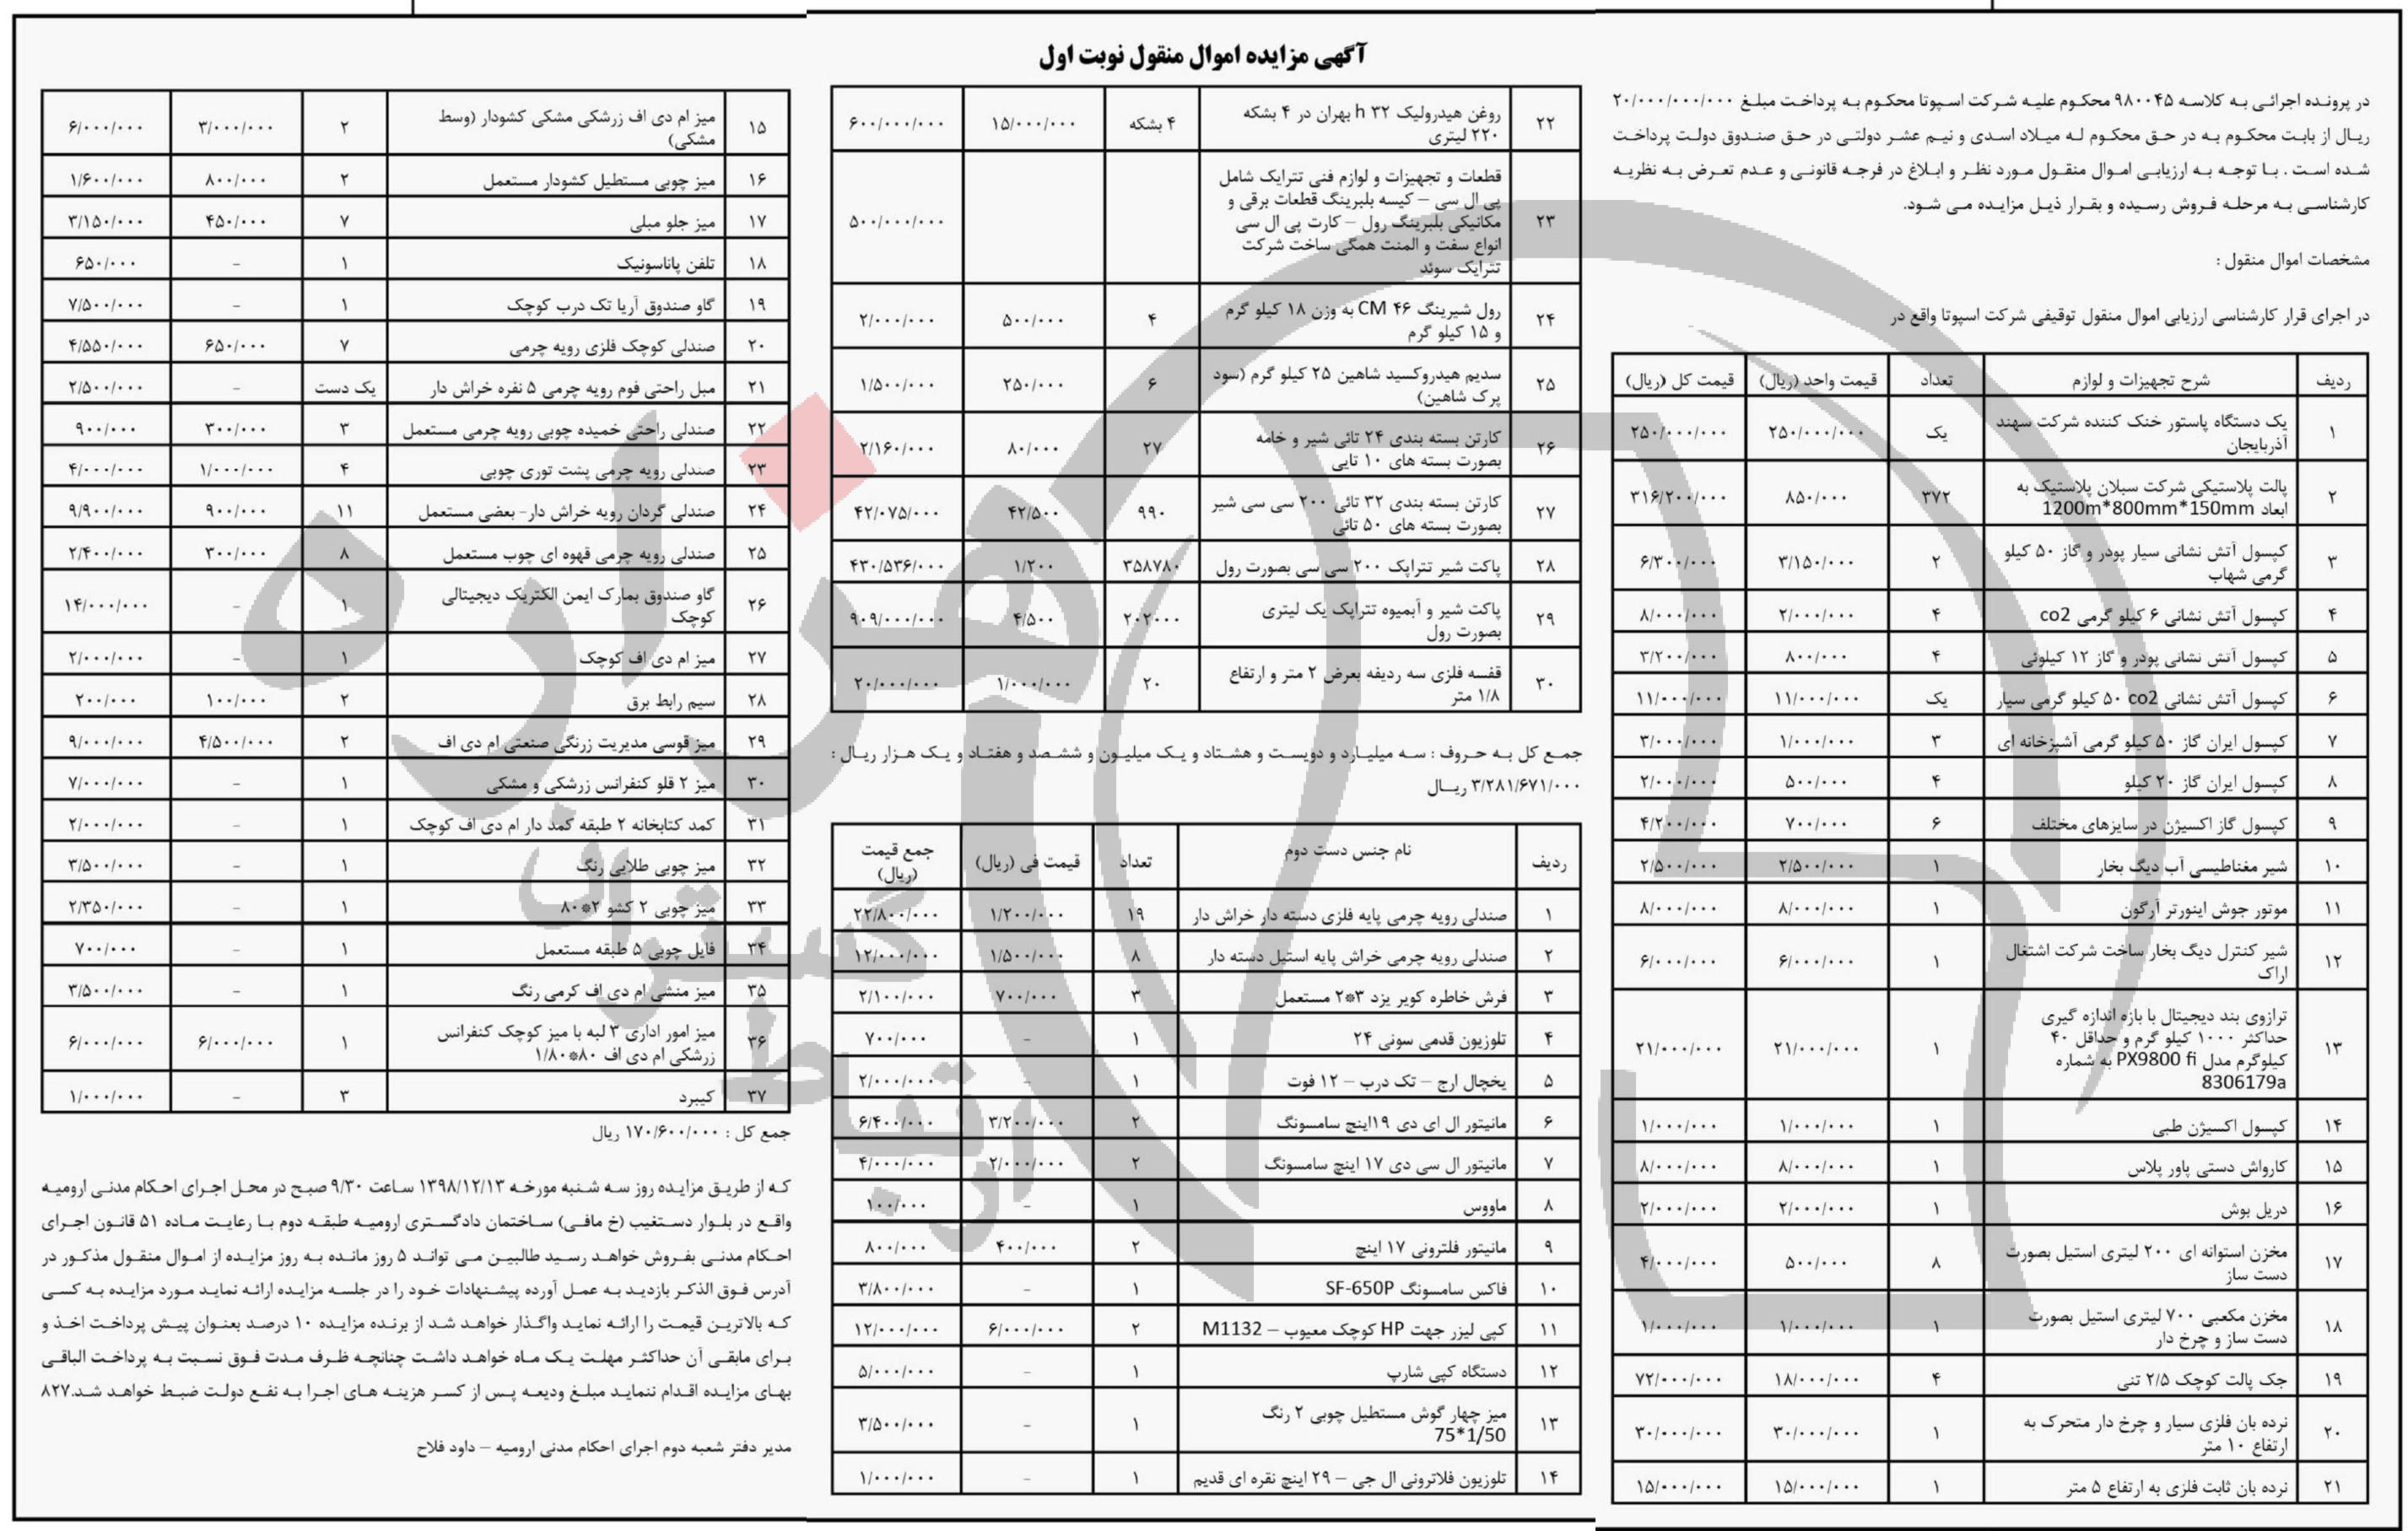 آگهی مزایده اموال منقول نوبت اول
در پرونده اجرائی به کلاسه ۹۸۰۰۴۵ محکوم علیه شرکت اسپوتا محکوم به پرداخت مبلغ ۲۰/۰۰۰/۰۰۰/۰۰۰
ریال از بابت محکوم به در حق محکوم له میلاد اسدی و نیم عشر دولتی در حق صندوق دولت پرداخت
شده است . با توجه به ارزیابی اموال منقول مورد نظر و ابلاغ در فرجه قانونی و عدم تعرض به نظریه
کارشناسی به مرحله فروش رسیده و بقرار ذیل مزایده می شود.
مشخصات اموال منقول :
در اجرای قرار کارشناسی ارزیابی اموال منقول توقیفی شرکت اسپوتا واقع در
ردیف شرح تجهیزات و لوازم تعداد قیمت واحد (ریال) قیمت کل (ریال)
۱ یک دستگاه پاستور خنک کننده شرکت سهند یک ۲۵۰/۰۰۰/۰۰۰ ۲۵۰/۰۰۰/۰۰۰
آذربایجان
۲ پالت پلاستیکی شرکت سبلان پلاستیک به ۳۷۲ ۸۵۰/۰۰۰ ۳۱۶/۲۰۰/۰۰۰
ابعاد 1200m*800mm*150mm
۳ کپسول آتش نشانی سیار پودر و گاز ۵۰ کیلو ۲ ۳/۱۵۰/۰۰۰ ۶/۳۰۰/۰۰۰
گرمی شهاب
۴ کپسول آتش نشانی ۶ کیلو گرمی co2 ۴ ۲/۰۰۰/۰۰۰ ۸/۰۰۰/۰۰۰
۵ کپسول آتش نشانی پودر و گاز ۱۲ کیلوئی ۴ ۸۰۰/۰۰۰ ۳/۲۰۰/۰۰۰
۶ کپسول آتش نشانی co2 ۵۰ کیلو گرمی سیار یک ۱۱/۰۰۰/۰۰۰ ۱۱/۰۰۰/۰۰۰
۷ کپسول ایران گاز ۵۰ کیلو گرمی آشپزخانه ای ۳ ۱/۰۰۰/۰۰۰ ۳/۰۰۰/۰۰۰
۸ کپسول ایران گاز ۲۰ کیلو ۴ ۵۰۰/۰۰۰ ۲/۰۰۰/۰۰۰
۹ کپسول گاز اکسیژن در سایزهای مختلف ۶ ۷۰۰/۰۰۰ ۴/۲۰۰/۰۰۰
۱۰ شیر مغناطیسی آب دیگ بخار ۱ ۲/۵۰۰/۰۰۰ ۲/۵۰۰/۰۰۰
۱۱ موتور جوش اینورتر آرگون ۱ ۸/۰۰۰/۰۰۰ ۸/۰۰۰/۰۰۰
۱۲ شیر کنترل دیگ بخار ساخت شرکت اشتغال ۱ ۶/۰۰۰/۰۰۰ ۶/۰۰۰/۰۰۰
اراک
۱۳ ترازوی بند دیجیتال با بازه اندازه گیری ۱ ۲۱/۰۰۰/۰۰۰ ۲۱/۰۰۰/۰۰۰
حداکثر ۱۰۰۰ کیلو گرم و حداقل ۴۰
کیلوگرم مدل PX9800 fi به شماره
8306179a
۱۴ کپسول اکسیژن طبی ۱ ۱/۰۰۰/۰۰۰ ۱/۰۰۰/۰۰۰
۱۵ کارواش دستی پاور پلاس ۱ ۸/۰۰۰/۰۰۰ ۸/۰۰۰/۰۰۰
۱۶ دریل بوش ۱ ۲/۰۰۰/۰۰۰ ۲/۰۰۰/۰۰۰
۱۷ مخزن استوانه ای ۲۰۰ لیتری استیل بصورت ۸ ۵۰۰/۰۰۰ ۴/۰۰۰/۰۰۰
دست ساز
۱۸ مخزن مکعبی ۷۰۰ لیتری استیل بصورت ۱ ۱/۰۰۰/۰۰۰ ۱/۰۰۰/۰۰۰
دست ساز و چرخ دار
۱۹ جک پالت کوچک ۲/۵ تنی ۴ ۱۸/۰۰۰/۰۰۰ ۷۲/۰۰۰/۰۰۰
۲۰ نرده بان فلزی سیار و چرخ دار متحرک به ۱ ۳۰/۰۰۰/۰۰۰ ۳۰/۰۰۰/۰۰۰
ارتفاع ۱۰ متر
۲۱ نرده بان ثابت فلزی به ارتفاع ۵ متر ۱ ۱۵/۰۰۰/۰۰۰ ۱۵/۰۰۰/۰۰۰
۲۲ روغن هیدرولیک h ۳۲ بهران در ۴ بشکه ۴ بشکه ۱۵/۰۰۰/۰۰۰ ۶۰۰/۰۰۰/۰۰۰
۲۲۰ لیتری
۲۳ قطعات و تجهیزات و لوازم فنی تتراپک شامل ۵۰۰/۰۰۰/۰۰۰
پی ال سی – کیسه بلبرینگ قطعات برقی و
مکانیکی بلبرینگ رول – کارت پی ال سی
انواع سفت و المنت همگی ساخت شرکت
تتراپک سوئد
۲۴ رول شیرینگ ۴۶ CM به وزن ۱۸ کیلو گرم ۴ ۵۰۰/۰۰۰ ۲/۰۰۰/۰۰۰
و ۱۵ کیلو گرم
۲۵ سدیم هیدروکسید شاهین ۲۵ کیلو گرم (سود ۶ ۲۵۰/۰۰۰ ۱/۵۰۰/۰۰۰
پرک شاهین)
۲۶ کارتن بسته بندی ۲۴ تائی شیر و خامه ۲۷ ۸۰/۰۰۰ ۲/۱۶۰/۰۰۰
بصورت بسته های ۱۰ تایی
۲۷ کارتن بسته بندی ۳۲ تائی ۲۰۰ سی سی شیر ۹۹۰ ۴۲/۵۰۰ ۴۲/۰۷۵/۰۰۰
بصورت بسته های ۵۰ تائی
۲۸ پاکت شیر تتراپک ۲۰۰ سی سی بصورت رول ۳۵۸۷۸۰ ۱/۲۰۰ ۴۳۰/۵۳۶/۰۰۰
۲۹ پاکت شیر و آبمیوه تتراپک یک لیتری ۲۰۲۰۰۰ ۴/۵۰۰ ۹۰۹/۰۰۰/۰۰۰
بصورت رول
۳۰ قفسه فلزی سه ردیفه بعرض ۲ متر و ارتفاع ۲۰ ۱/۰۰۰/۰۰۰ ۲۰/۰۰۰/۰۰۰
۱/۸ متر
جمع کل به حروف : سه میلیارد و دویست و هشتاد و یک میلیون و ششصد و هفتاد و یک هزار ریال :
۳/۲۸۱/۶۷۱/۰۰۰ ریال
ردیف نام جنس دست دوم تعداد قیمت فی (ریال) جمع قیمت
(ریال)
۱ صندلی رویه چرمی پایه فلزی دسته دار خراش دار ۱۹ ۱/۲۰۰/۰۰۰ ۲۲/۸۰۰/۰۰۰
۲ صندلی رویه چرمی خراش پایه استیل دسته دار ۸ ۱/۵۰۰/۰۰۰ ۱۲/۰۰۰/۰۰۰
۳ فرش خاطره کویر یزد ۳*۲ مستعمل ۳ ۷۰۰/۰۰۰ ۲/۱۰۰/۰۰۰
۴ تلوزیون قدمی سونی ۲۴ ۱ – ۷۰۰/۰۰۰
۵ یخچال ارج – تک درب – ۱۲ فوت ۱ – ۲/۰۰۰/۰۰۰
۶ مانیتور ال ای دی ۱۹اینچ سامسونگ ۲ ۳/۲۰۰/۰۰۰ ۶/۴۰۰/۰۰۰
۷ مانیتور ال سی دی ۱۷ اینچ سامسونگ ۲ ۲/۰۰۰/۰۰۰ ۴/۰۰۰/۰۰۰
۸ ماووس ۱ – ۱۰۰/۰۰۰
۹ مانیتور فلترونی ۱۷ اینچ ۲ ۴۰۰/۰۰۰ ۸۰۰/۰۰۰
۱۰ فاکس سامسونگ SF-650P ۱ – ۳/۸۰۰/۰۰۰
۱۱ کپی لیزر جهت HP کوچک معیوب – M1132 ۲ ۶/۰۰۰/۰۰۰ ۱۲/۰۰۰/۰۰۰
۱۲ دستگاه کپی شارپ ۱ – ۵/۰۰۰/۰۰۰
۱۳ میز چهار گوش مستطیل چوبی ۲ رنگ ۱ – ۳/۵۰۰/۰۰۰
75*1/50
۱۴ تلوزیون فلاترونی ال جی – ۲۹ اینچ نقره ای قدیم ۱ – ۱/۰۰۰/۰۰۰
۱۵ میز ام دی اف زرشکی مشکی کشودار (وسط ۲ ۳/۰۰۰/۰۰۰ ۶/۰۰۰/۰۰۰
مشکی)
۱۶ میز چوبی مستطیل کشودار مستعمل ۲ ۸۰۰/۰۰۰ ۱/۶۰۰/۰۰۰
۱۷ میز جلو مبلی ۷ ۴۵۰/۰۰۰ ۳/۱۵۰/۰۰۰
۱۸ تلفن پاناسونیک ۱ – ۶۵۰/۰۰۰
۱۹ گاو صندوق آریا تک درب کوچک ۱ – ۷/۵۰۰/۰۰۰
۲۰ صندلی کوچک فلزی رویه چرمی ۷ ۶۵۰/۰۰۰ ۴/۵۵۰/۰۰۰
۲۱ مبل راحتی فوم رویه چرمی ۵ نفره خراش دار یک دست – ۲/۵۰۰/۰۰۰
۲۲ صندلی راحتی خمیده چوبی رویه چرمی مستعمل ۳ ۳۰۰/۰۰۰ ۹۰۰/۰۰۰
۲۳ صندلی رویه چرمی پشت توری چوبی ۴ ۱/۰۰۰/۰۰۰ ۴/۰۰۰/۰۰۰
۲۴ صندلی گردان رویه خراش دار- بعضی مستعمل ۱۱ ۹۰۰/۰۰۰ ۹/۹۰۰/۰۰۰
۲۵ صندلی رویه چرمی قهوه ای چوب مستعمل ۸ ۳۰۰/۰۰۰ ۲/۴۰۰/۰۰۰
۲۶ گاو صندوق بمارک ایمن الکتریک دیجیتالی ۱ – ۱۴/۰۰۰/۰۰۰
کوچک
۲۷ میز ام دی اف کوچک ۱ – ۲/۰۰۰/۰۰۰
۲۸ سیم رابط برق ۲ ۱۰۰/۰۰۰ ۲۰۰/۰۰۰
۲۹ میز قوسی مدیریت زرنگی صنعتی ام دی اف ۲ ۴/۵۰۰/۰۰۰ ۹/۰۰۰/۰۰۰
۳۰ میز ۲ قلو کنفرانس زرشکی و مشکی ۱ – ۷/۰۰۰/۰۰۰
۳۱ کمد کتابخانه ۲ طبقه کمد دار ام دی اف کوچک ۱ – ۲/۰۰۰/۰۰۰
۳۲ میز چوبی طلایی رنگ ۱ – ۳/۵۰۰/۰۰۰
۳۳ میز چوبی ۲ کشو ۲*۸۰ ۱ – ۲/۳۵۰/۰۰۰
۳۴ فایل چوبی ۵ طبقه مستعمل ۱ – ۷۰۰/۰۰۰
۳۵ میز منشی ام دی اف کرمی رنگ ۱ – ۳/۵۰۰/۰۰۰
۳۶ میز امور اداری ۳ لبه با میز کوچک کنفرانس ۱ ۶/۰۰۰/۰۰۰ ۶/۰۰۰/۰۰۰
زرشکی ام دی اف ۸۰*۱/۸۰
۳۷ کیبرد ۳ – ۱/۰۰۰/۰۰۰
جمع کل : ۱۷۰/۶۰۰/۰۰۰ ریال
که از طریق مزایده روز سه شنبه مورخه ۱۳۹۸/۱۲/۱۳ ساعت ۹/۳۰ صبح در محل اجرای احکام مدنی ارومیه
واقع در بلوار دستغیب (خ مافی) ساختمان دادگستری ارومیه طبقه دوم با رعایت ماده ۵۱ قانون اجرای
احکام مدنی بفروش خواهد رسید طالبین می تواند ۵ روز مانده به روز مزایده از اموال منقول مذکور در
آدرس فوق الذکر بازدید به عمل آورده پیشنهادات خود را در جلسه مزایده ارائه نماید مورد مزایده به کسی
که بالاترین قیمت را ارائه نماید واگذار خواهد شد از برنده مزایده ۱۰ درصد بعنوان پیش پرداخت اخذ و
برای مابقی آن حداکثر مهلت یک ماه خواهد داشت چنانچه ظرف مدت فوق نسبت به پرداخت الباقی
بهای مزایده اقدام ننماید مبلغ ودیعه پس از کسر هزینه های اجرا به نفع دولت ضبط خواهد شد.۸۲۷
مدیر دفتر شعبه دوم اجرای احکام مدنی ارومیه – داود فلاح
هزاره
گستران
ارتباط